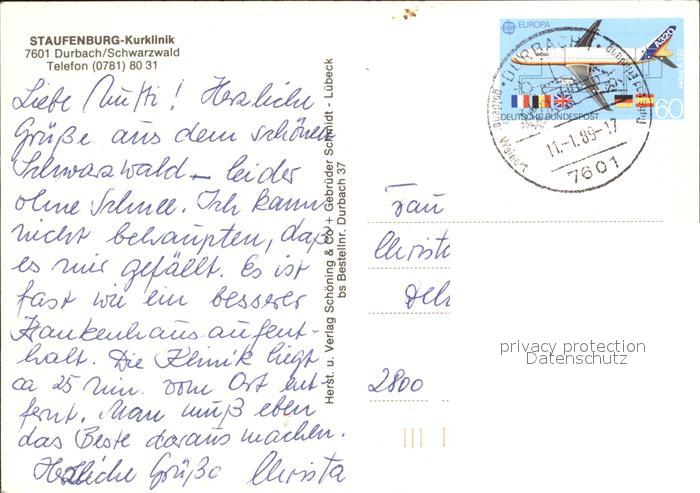 STAUFENBURG-Kurklinik
7601 Durbach/Schwarzwald
Telefon (0781) 80 31
Liebe Mutti! Herzliche
Grüße aus dem schönen
Schwarzwald – leider
ohne Schnee. Ich kann
nicht behaupten, daß
es mir gefällt. Es ist
fast wie ein besserer
Krankenhausaufent-
halt. Die Klinik liegt
ca 25 Min. vom Ort ent-
fernt. Man muß eben
das Beste daraus machen.
Herzliche Grüße Christa
Herst. u. Verlag Schöning & Co + Gebrüder Schmidt - Lübeck
bs Bestellnr. Durbach 37
EUROPA
A320
Airbus A320
DEUTSCHE BUNDESPOST
60
DURBACH
11.-1.89-17
7601
Frau
Christa
2800
privacy protection
Datenschutz